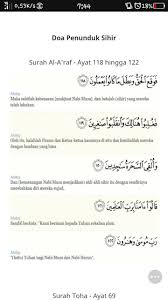 0,53K/s
7:44
83%
Doa Penunduk Sihir
Surah Al-A'raf - Ayat 118 hingga 122
فَوَقَعَ الْحَقُّ وَبَطَلَ مَا كَانُوا يَعْمَلُونَ ﴿١١٨﴾
Maka sabitlah kebenaran (mukjizat Nabi Musa), dan batallah (sihir) yang mereka telah lakukan.
فَغُلِبُوا هُنَالِكَ وَانْقَلَبُوا صَاغِرِينَ ﴿١١٩﴾
Oleh itu, kalahlah Firaun dan Ketua-ketua kaumnya di situ dan kembalilah mereka dengan keadaan yang hina.
وَأُلْقِيَ السَّحَرَةُ سَاجِدِينَ ﴿١٢٠﴾
Dan (kemenangan Nabi Musa menjadikan) ahli-ahli sihir itu dengan sendirinya merebahkan diri mereka sujud,
قَالُوا آمَنَّا بِرَبِّ الْعَالَمِينَ ﴿١٢١﴾
Sambil berkata: "Kami beriman kepada Tuhan sekalian alam,
رَبِّ مُوسَىٰ وَهَارُونَ ﴿١٢٢﴾
"(Iaitu) Tuhan bagi Nabi Musa dan Nabi Harun".
Surah Toha - Ayat 69